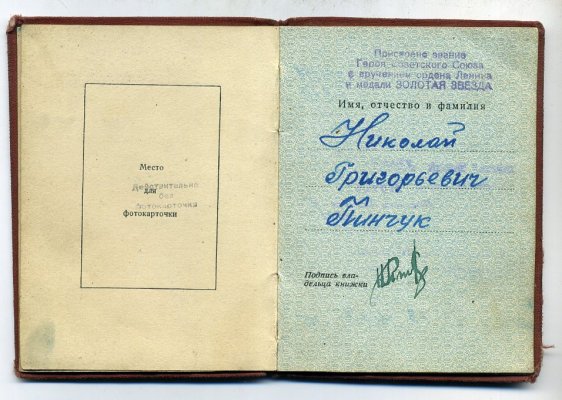 Место
для
фотокарточки
Действительно
без
фотокарточки
Присвоено звание
Героя Советского Союза
с вручением ордена Ленина
и медали ЗОЛОТАЯ ЗВЕЗДА
Имя, отчество и фамилия
Николай
Григорьевич
Пинчук
Подпись вла-
дельца книжки